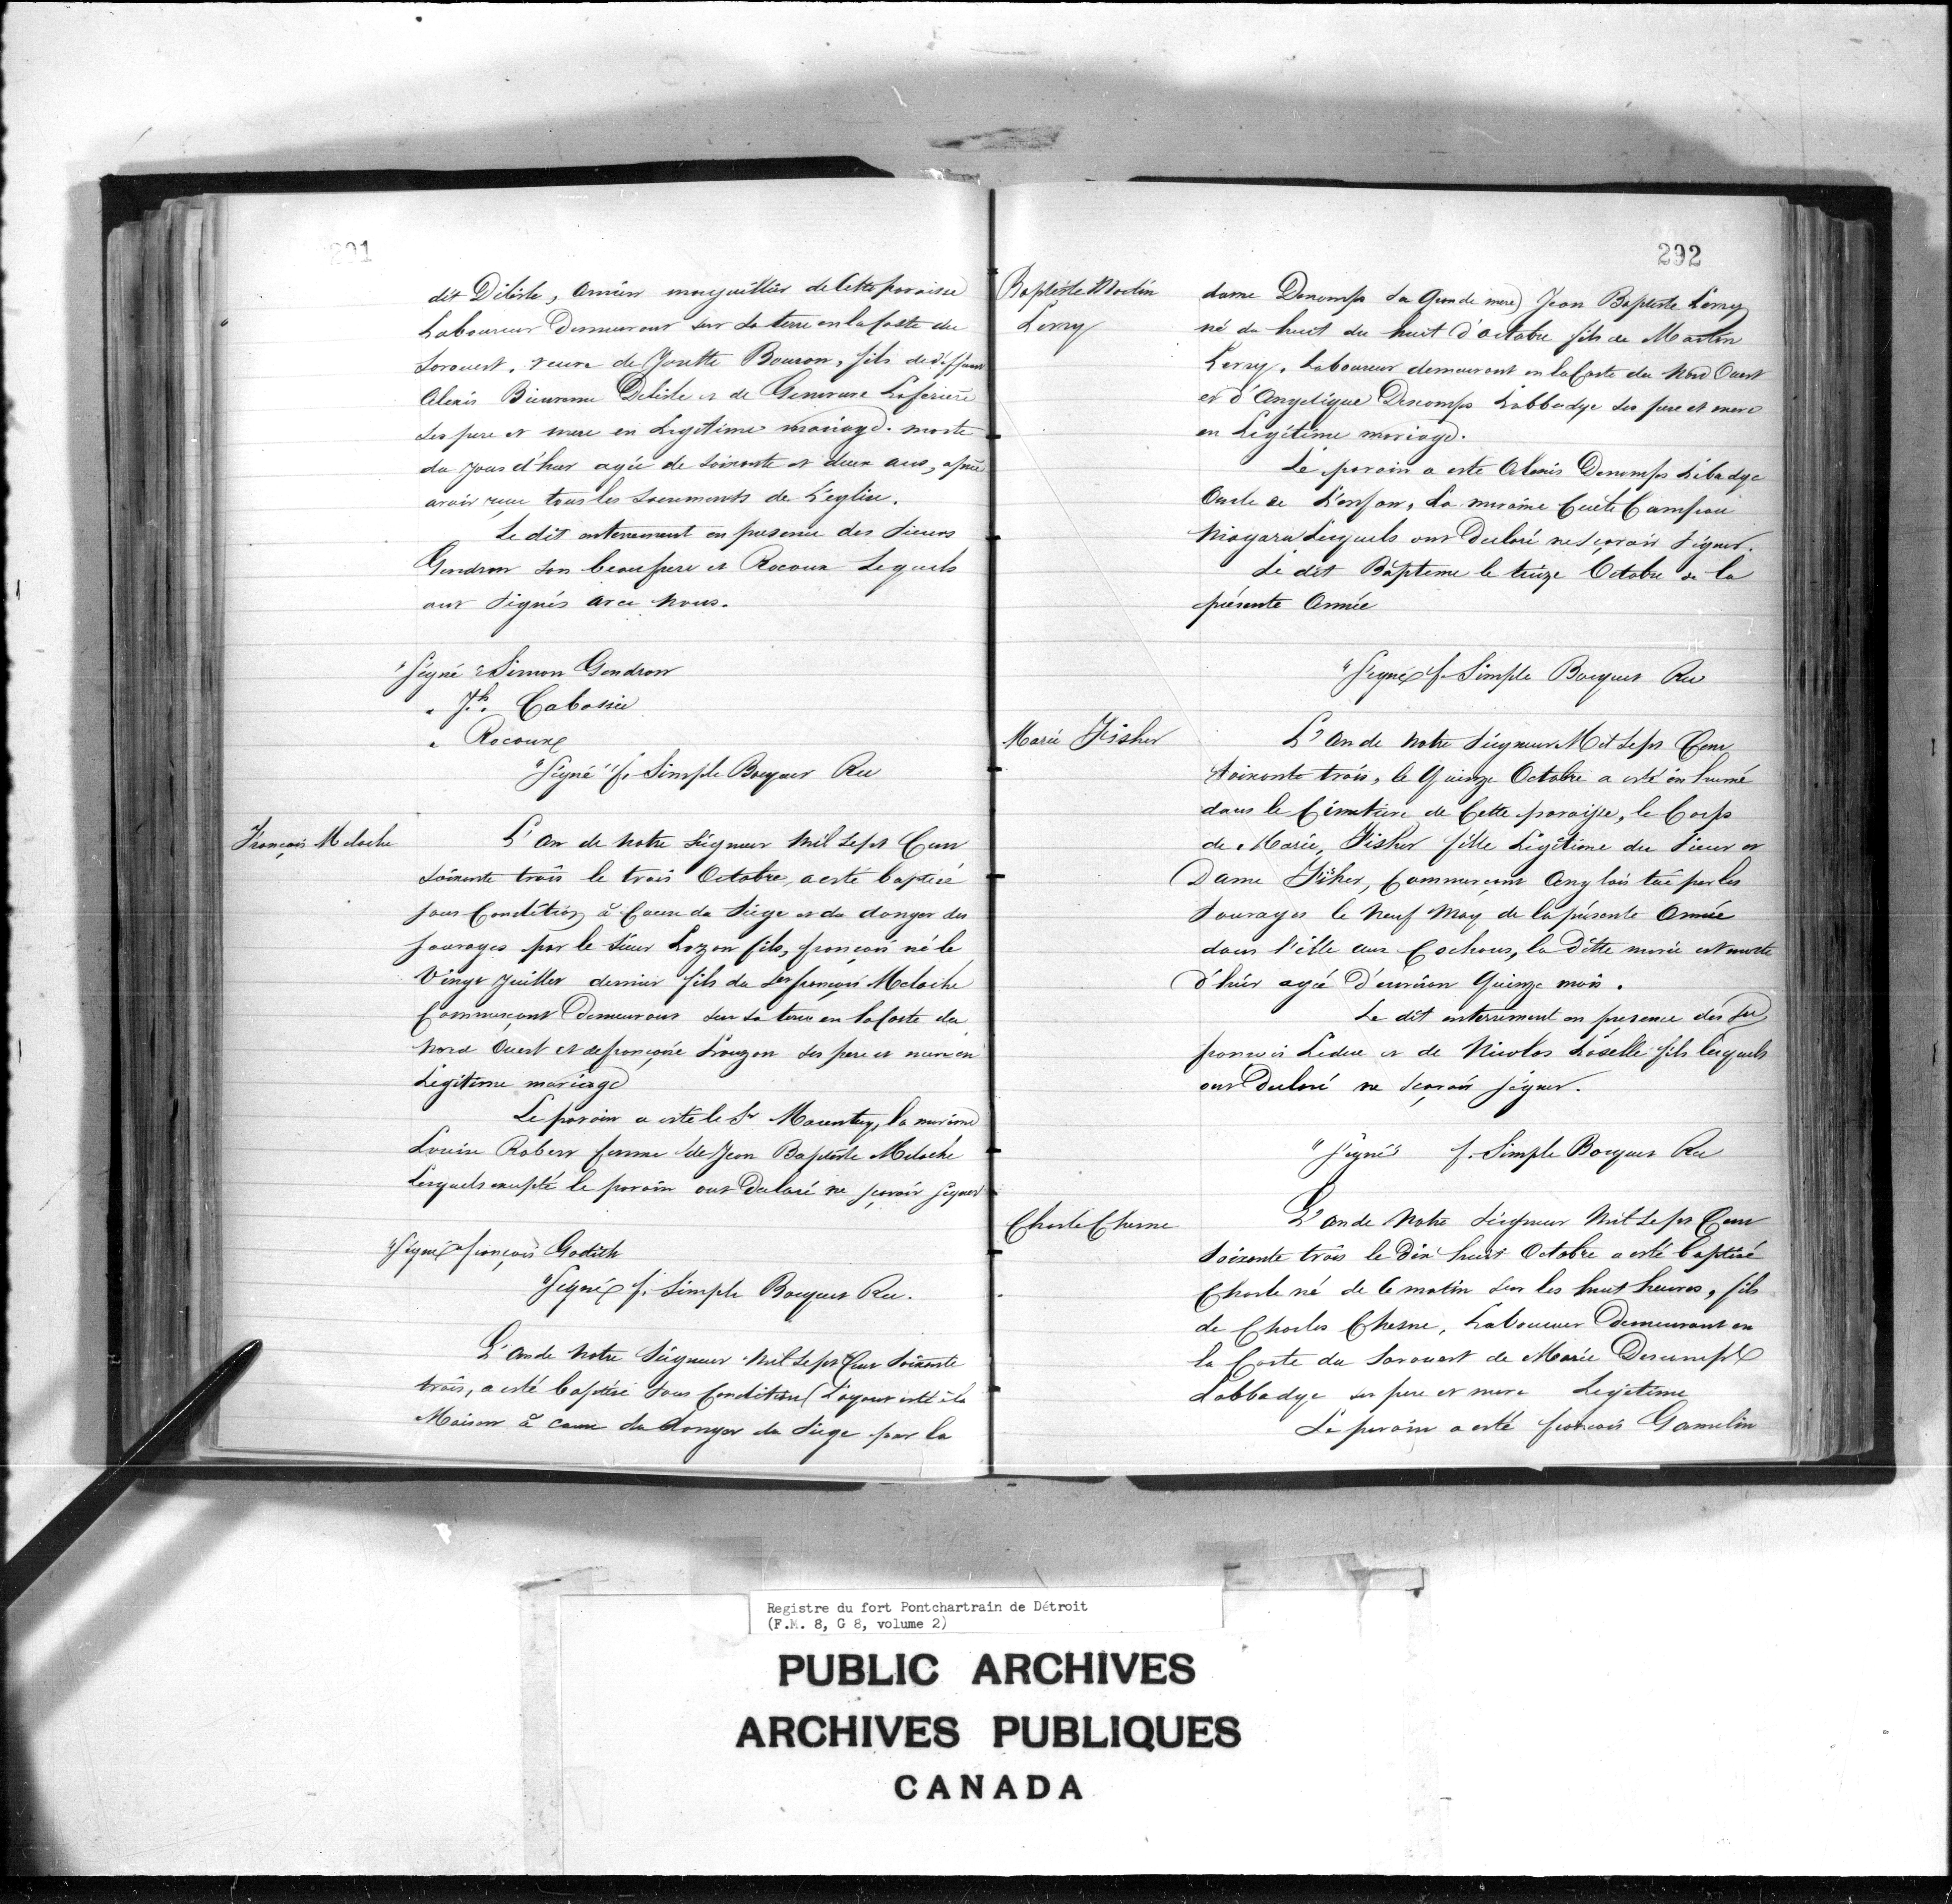 291
dit Delisle, Ancien marguillier de Cette paroisse
Laboureur Demeurant sur sa terre en la Coste du
Sorouest, veure de Josette Bouron, fils de deffunt
Alexis Bienvenu Delisle et de Genevieve Laferiere
ses pere et mere en Legitime mariage. morte
du jour d'hier agée de soixante et deux ans, aprés
avoir reçu tous les sacrements de L'eglise.
Le dit enterrement en presence des Sieurs
Gendron son beaupere et Rocoux Lequels
ont signés avec nous.
"Signé" Simon Gendron
" Jh. Cabassié
" Rocoux
"Signé" f. Simple Bocquet Rec
François Meloche
L'an de notre Seigneur Mil Sept Cent
soixante trois le trois Octobre, a esté baptisé
sous Condition à Cause du Siege et du danger des
sauvages par le Sieur Lozon fils, françois né le
Vingt Juillet dernier fils du Sr françois Meloche
Commerçant Demeurant sur sa terre en la Coste du
Nord Ouest et de françoise Louzon ses pere et mere en
Legitime mariage
Le parain a esté le Sr Marentay, la maraine
Louise Robert femme de Jean Baptiste Meloche
Lesquels excepté le parain ont Declaré ne scavoir signer
"Signé" françois Godith
"Signé" f. Simple Bocquet Rec.
L'an de Notre Seigneur Mil Sept Cent Soixante
trois, a esté baptisé sous Condition (L'ayant esté à la
Maison à cause du danger du Siege par la
292
Baptiste Martin
Lerey
dame Decomps sa Grande mere) Jean Baptiste Lerey
né du huit du huit d'octobre fils de Martin
Lerey, Laboureur demeurant en la Coste du Nord Ouest
et d'Angelique Descomps Labbadye ses pere et mere
en Legitime mariage.
Le parain a esté Alexis Decomps Labadye
Oncle de L'enfan, La maraine Cecile Campau
Niagara Lesquels ont Declaré ne scavoir signer.
Le dit Baptême le treize Octobre de la
présente Année
"Signé" f. Simple Bocquet Rec
Marie Fisher
L'an de Notre Seigneur Mil Sept Cent
soixante trois, le Quinze Octobre a esté inhumé
dans le Cimetiere de Cette paroisse, le Corps
de Marie Fisher fille Légitime du Sieur et
Dame Fisher, Commerçant Anglois tué par les
Sauvages le Neuf May de la présente Année
dans l'isle aux Cochons, la ditte marie est morte
d'hier agée D'environ Quinze mois.
Le dit enterrement en presence des Sr
francois Leduc et de Nicolas Laselle fils lesquels
ont Declaré ne scavoir signer.
"Signé" f. Simple Bocquet Rec
Charle Chesne
L'an de Notre Seigneur Mil Sept Cent
Soixante trois le Dix huit Octobre a esté baptisé
Charle né de Ce matin sur les huit heures, fils
de Charles Chesne, Laboureur Demeurant en
la Coste du Sorouest de Marie Descompts
Labbadye ses pere et mere Legitime
Le parain a esté francois Gamelin
Registre du fort Pontchartrain de Détroit
(F.M. 8, G 8, volume 2)
PUBLIC ARCHIVES
ARCHIVES PUBLIQUES
CANADA